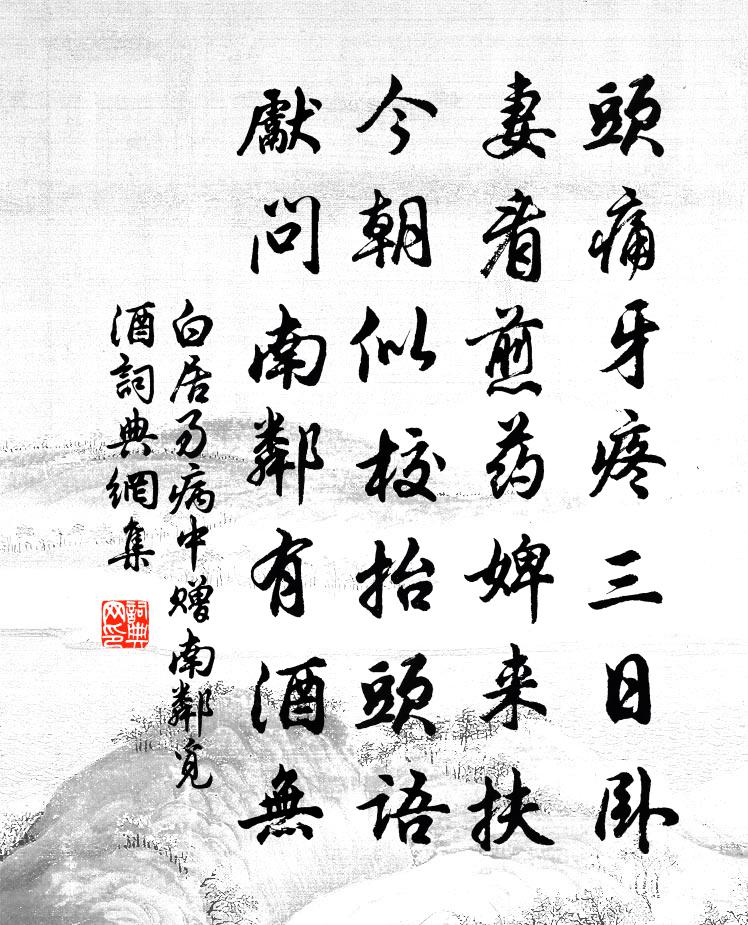 頭痛牙疼三日卧
妻看煎药婢来扶
今朝似校抬頭語
獻問南鄰有酒無
白居易病中赠南鄰覓
酒詞典網集
詞典网印